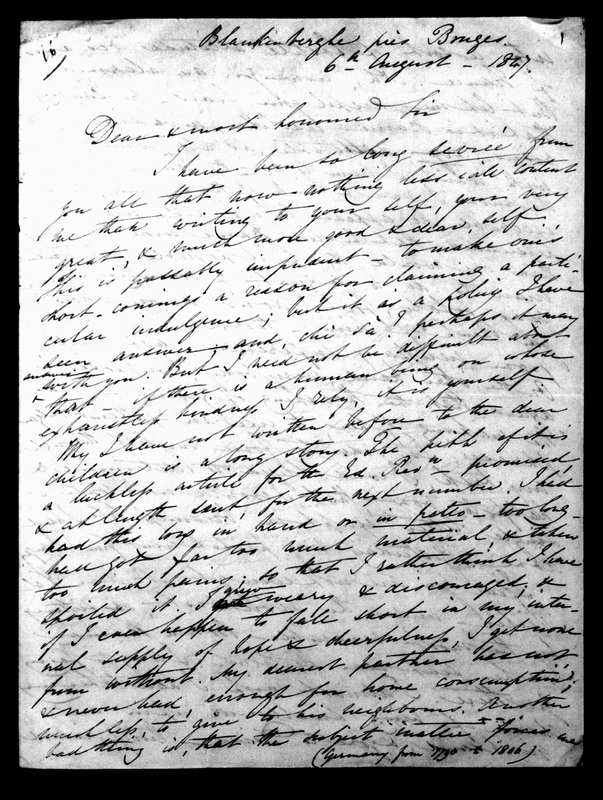 16
1
Blankenberghe près Bruges.
6th August - 1847.
Dear & most honoured Sir
I have been so long sevré from
you all that now nothing less will content
me than writing to your self, your very
great, & much more good & dear, self.
This is passably impudent - to make one's
short-comings a reason for claiming a parti-
cular indulgence; but it as a I have
seen answer - and, chi sà? perhaps it may
answer
with you. But I need not be difficult about
that - if there is a human being on whose
exhaustless kindness I rely, it is yourself.
Why I have not written before to the dear
children is a long story. The pith of it is
a luckless article for the Ed. Revw. promised,
& at length sent, for the next number. I had
had this long in hand or in petto - too long -
have got far too much material, & taken
too much pains; so that I rather think I have
spoiled it. I grew weary & discouraged, &
if I ever happen to fall short in my inter-
nal supply of hope & cheerfulness, I get none
from without. My dearest partner has not,
& never had, enough for home consumption;
much less, to give to his neighbours. Another
bad thing is, that the subject matter forces me
(Germany from 1790 to 1806)